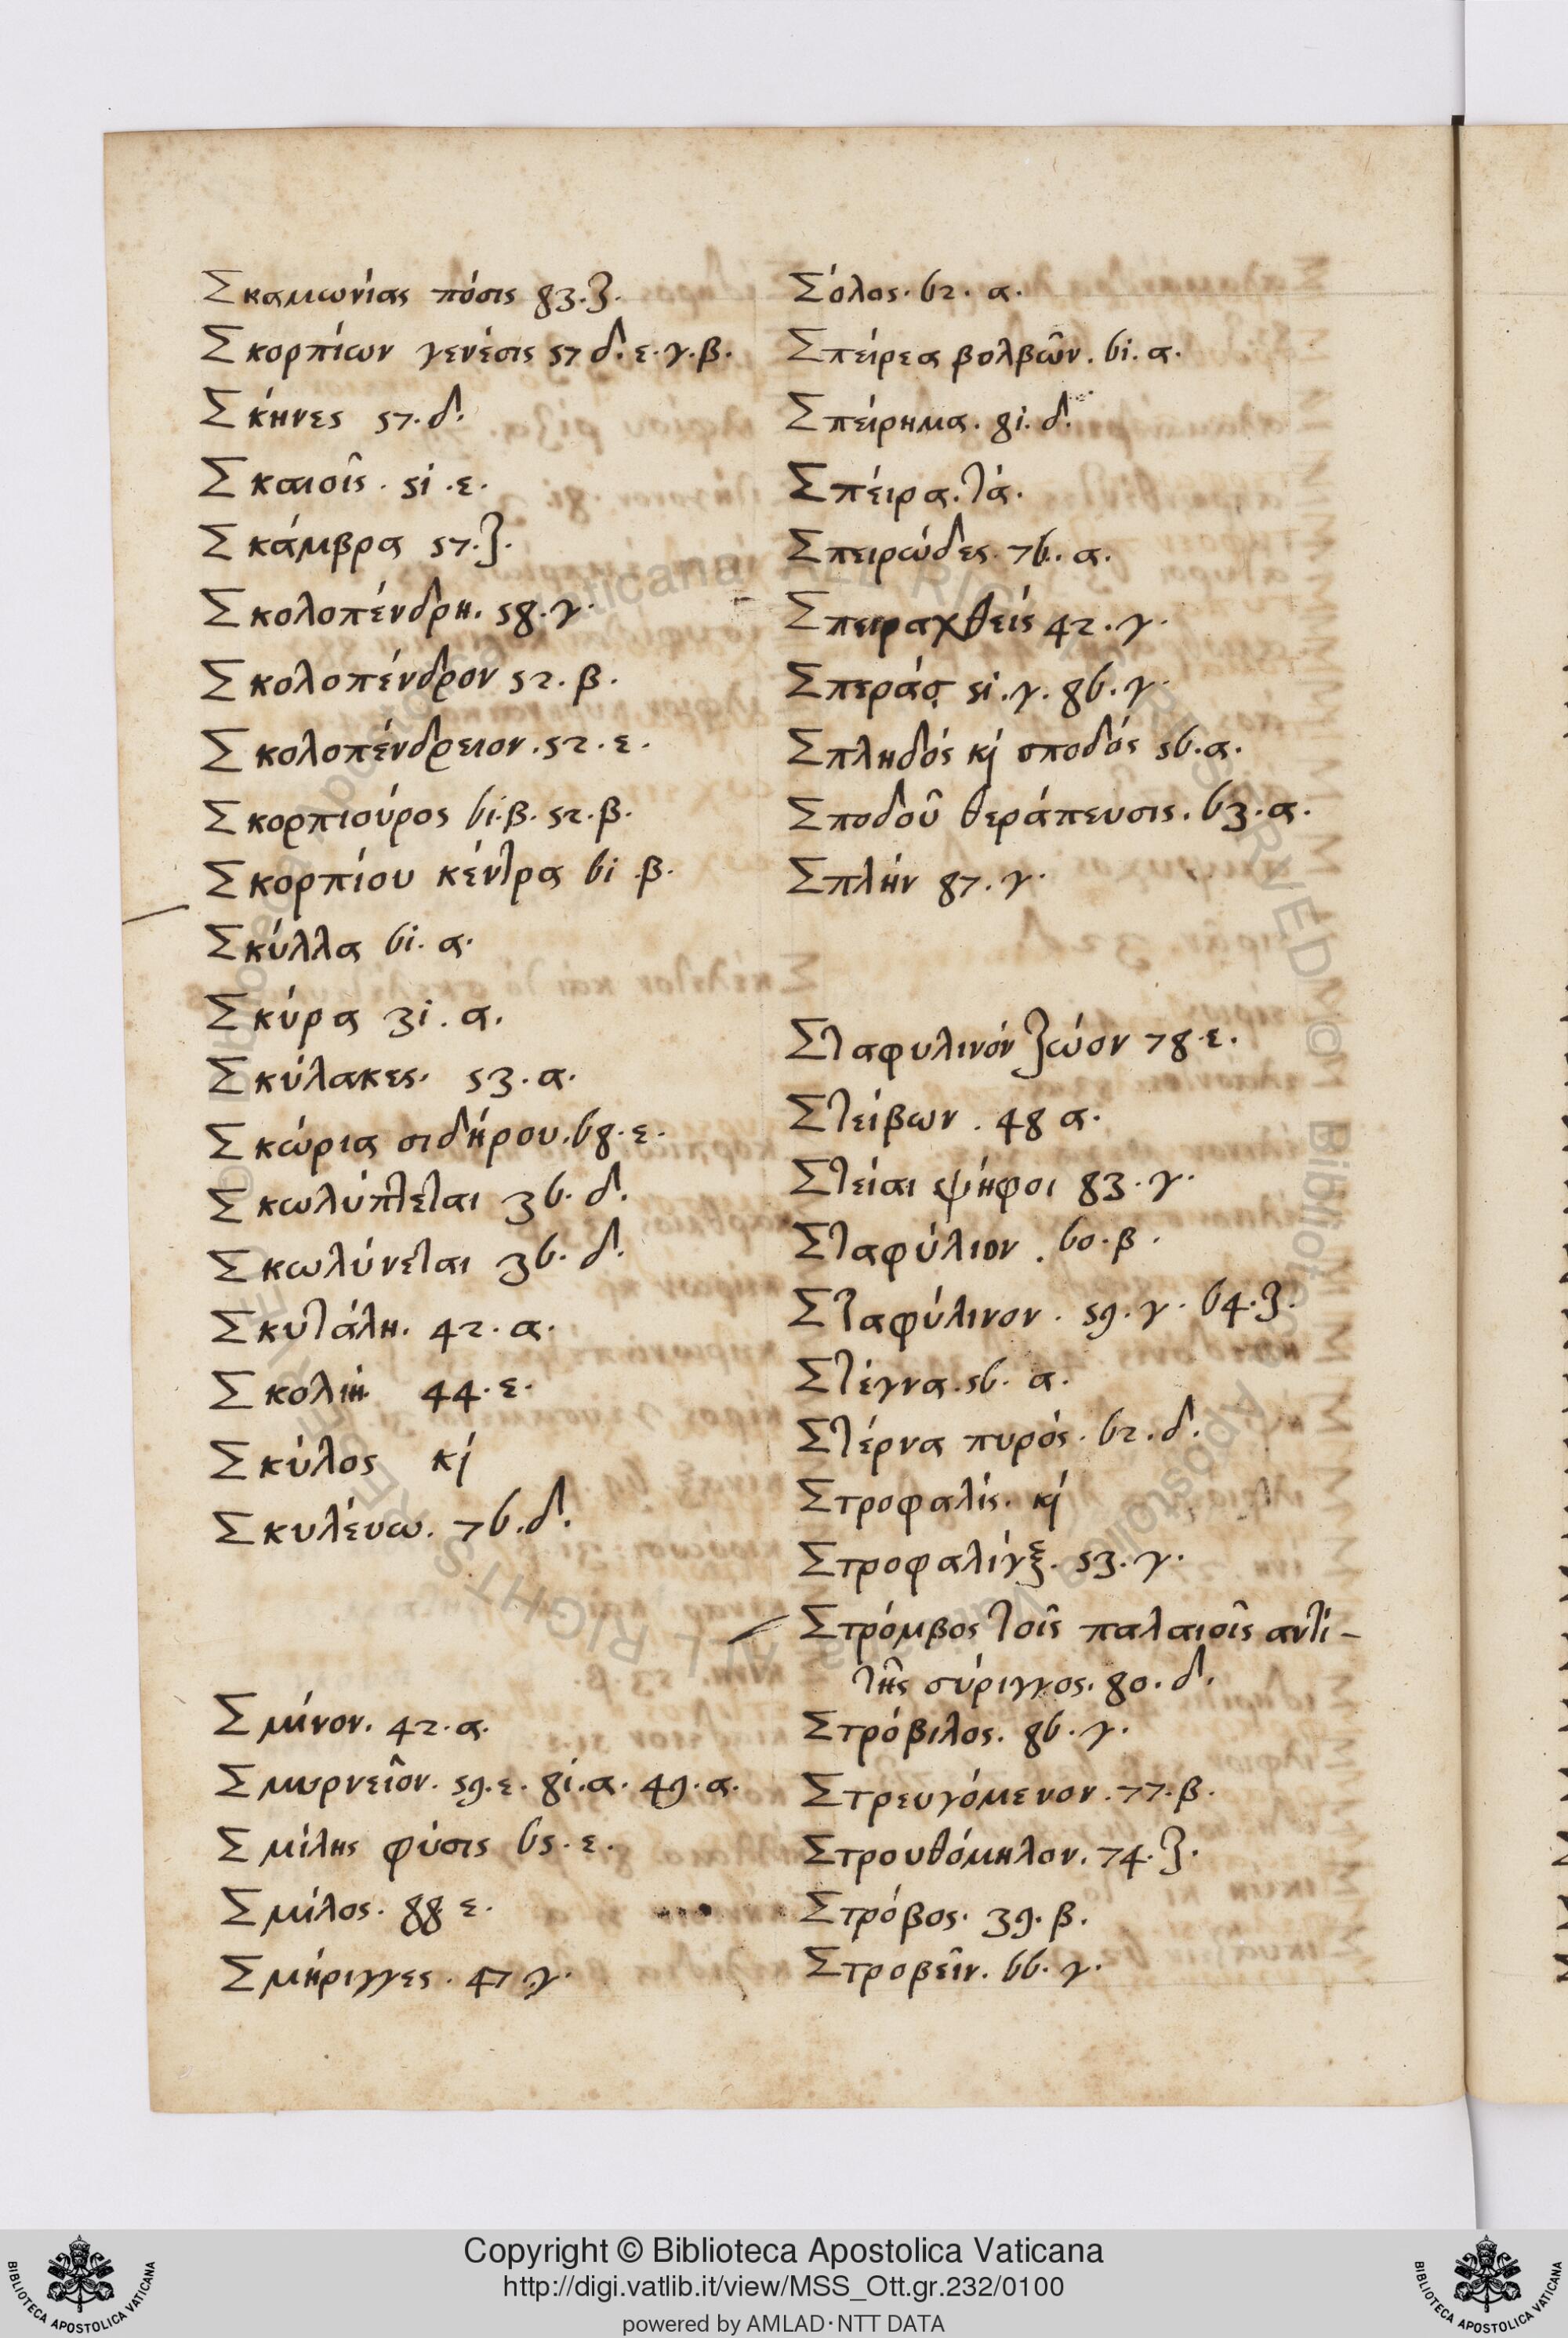 Σκαμωνίας πόσις 83.ζ.
Σκορπίων γενέσις 57 δ. ε. γ. β.
Σκήνες 57. δ.
Σκαιοῖς. 51. ε.
Σκάμβρα 57. ζ.
Σκολοπένδρη. 58. γ.
Σκολοπένδρον 52. β.
Σκολοπένδρειον. 52. ε.
Σκορπιούρος 61. β. 52. β.
Σκορπίου κέντρα 61. β.
Σκύλλα 61. α.
Σκύρα 31. α.
Σκύλακες. 53. α.
Σκώρια σιδήρου. 68. ε.
Σκωλύπτεται 36. δ.
Σκωλύνεται 36. δ.
Σκυτάλη. 42. α.
Σκολιή 44. ε.
Σκύλος κj
Σκυλέυω. 76. δ.
Σμίνον. 42. α.
Σμυρνεῖον. 59. ε. 81. α. 49. α.
Σμίλης φύσις 65. ε.
Σμίλος. 88 ε.
Σμήριγγες. 47 γ.
Σόλος. 62. α.
Σπείρεα βολβῶν. 61. α.
Σπείρημα. 81. δ.
Σπέιρα. τά.
Σπειρώδες. 76. α.
Σπειραχθείς 42. γ.
Σπεράς 51. γ. 86. γ.
Σπληδός κj σποδός 56. α.
Σποδοῦ θεράπευσις. 63. α.
Σπλήν 87. γ.
Σταφυλινόν ζώον 78. ε.
Στείβων. 48 α.
Στείαι ψήφοι 83. γ.
Σταφύλιον. 60. β.
Σταφύλινον. 59. γ. 64. ζ.
Στέγνα. 56. α.
Στέρνα πυρός. 62. δ.
Στροφαλίς. κj
Στροφαλίγξ. 53. γ.
Στρόμβος τοῖς παλαιοῖς αντί-
τῆς σύριγγος. 80. δ.
Στρόβιλος. 86. γ.
Στρευγόμενον. 77. β.
Στρουθόμηλον. 74. ζ.
Στρόβος. 39. β.
Στροβεῖν. 66. γ.
Copyright © Biblioteca Apostolica Vaticana
http://digi.vatlib.it/view/MSS_Ott.gr.232/0100
powered by AMLAD·NTT DATA
BIBLIOTECA APOSTOLICA VATICANA
BIBLIOTECA APOSTOLICA VATICANA